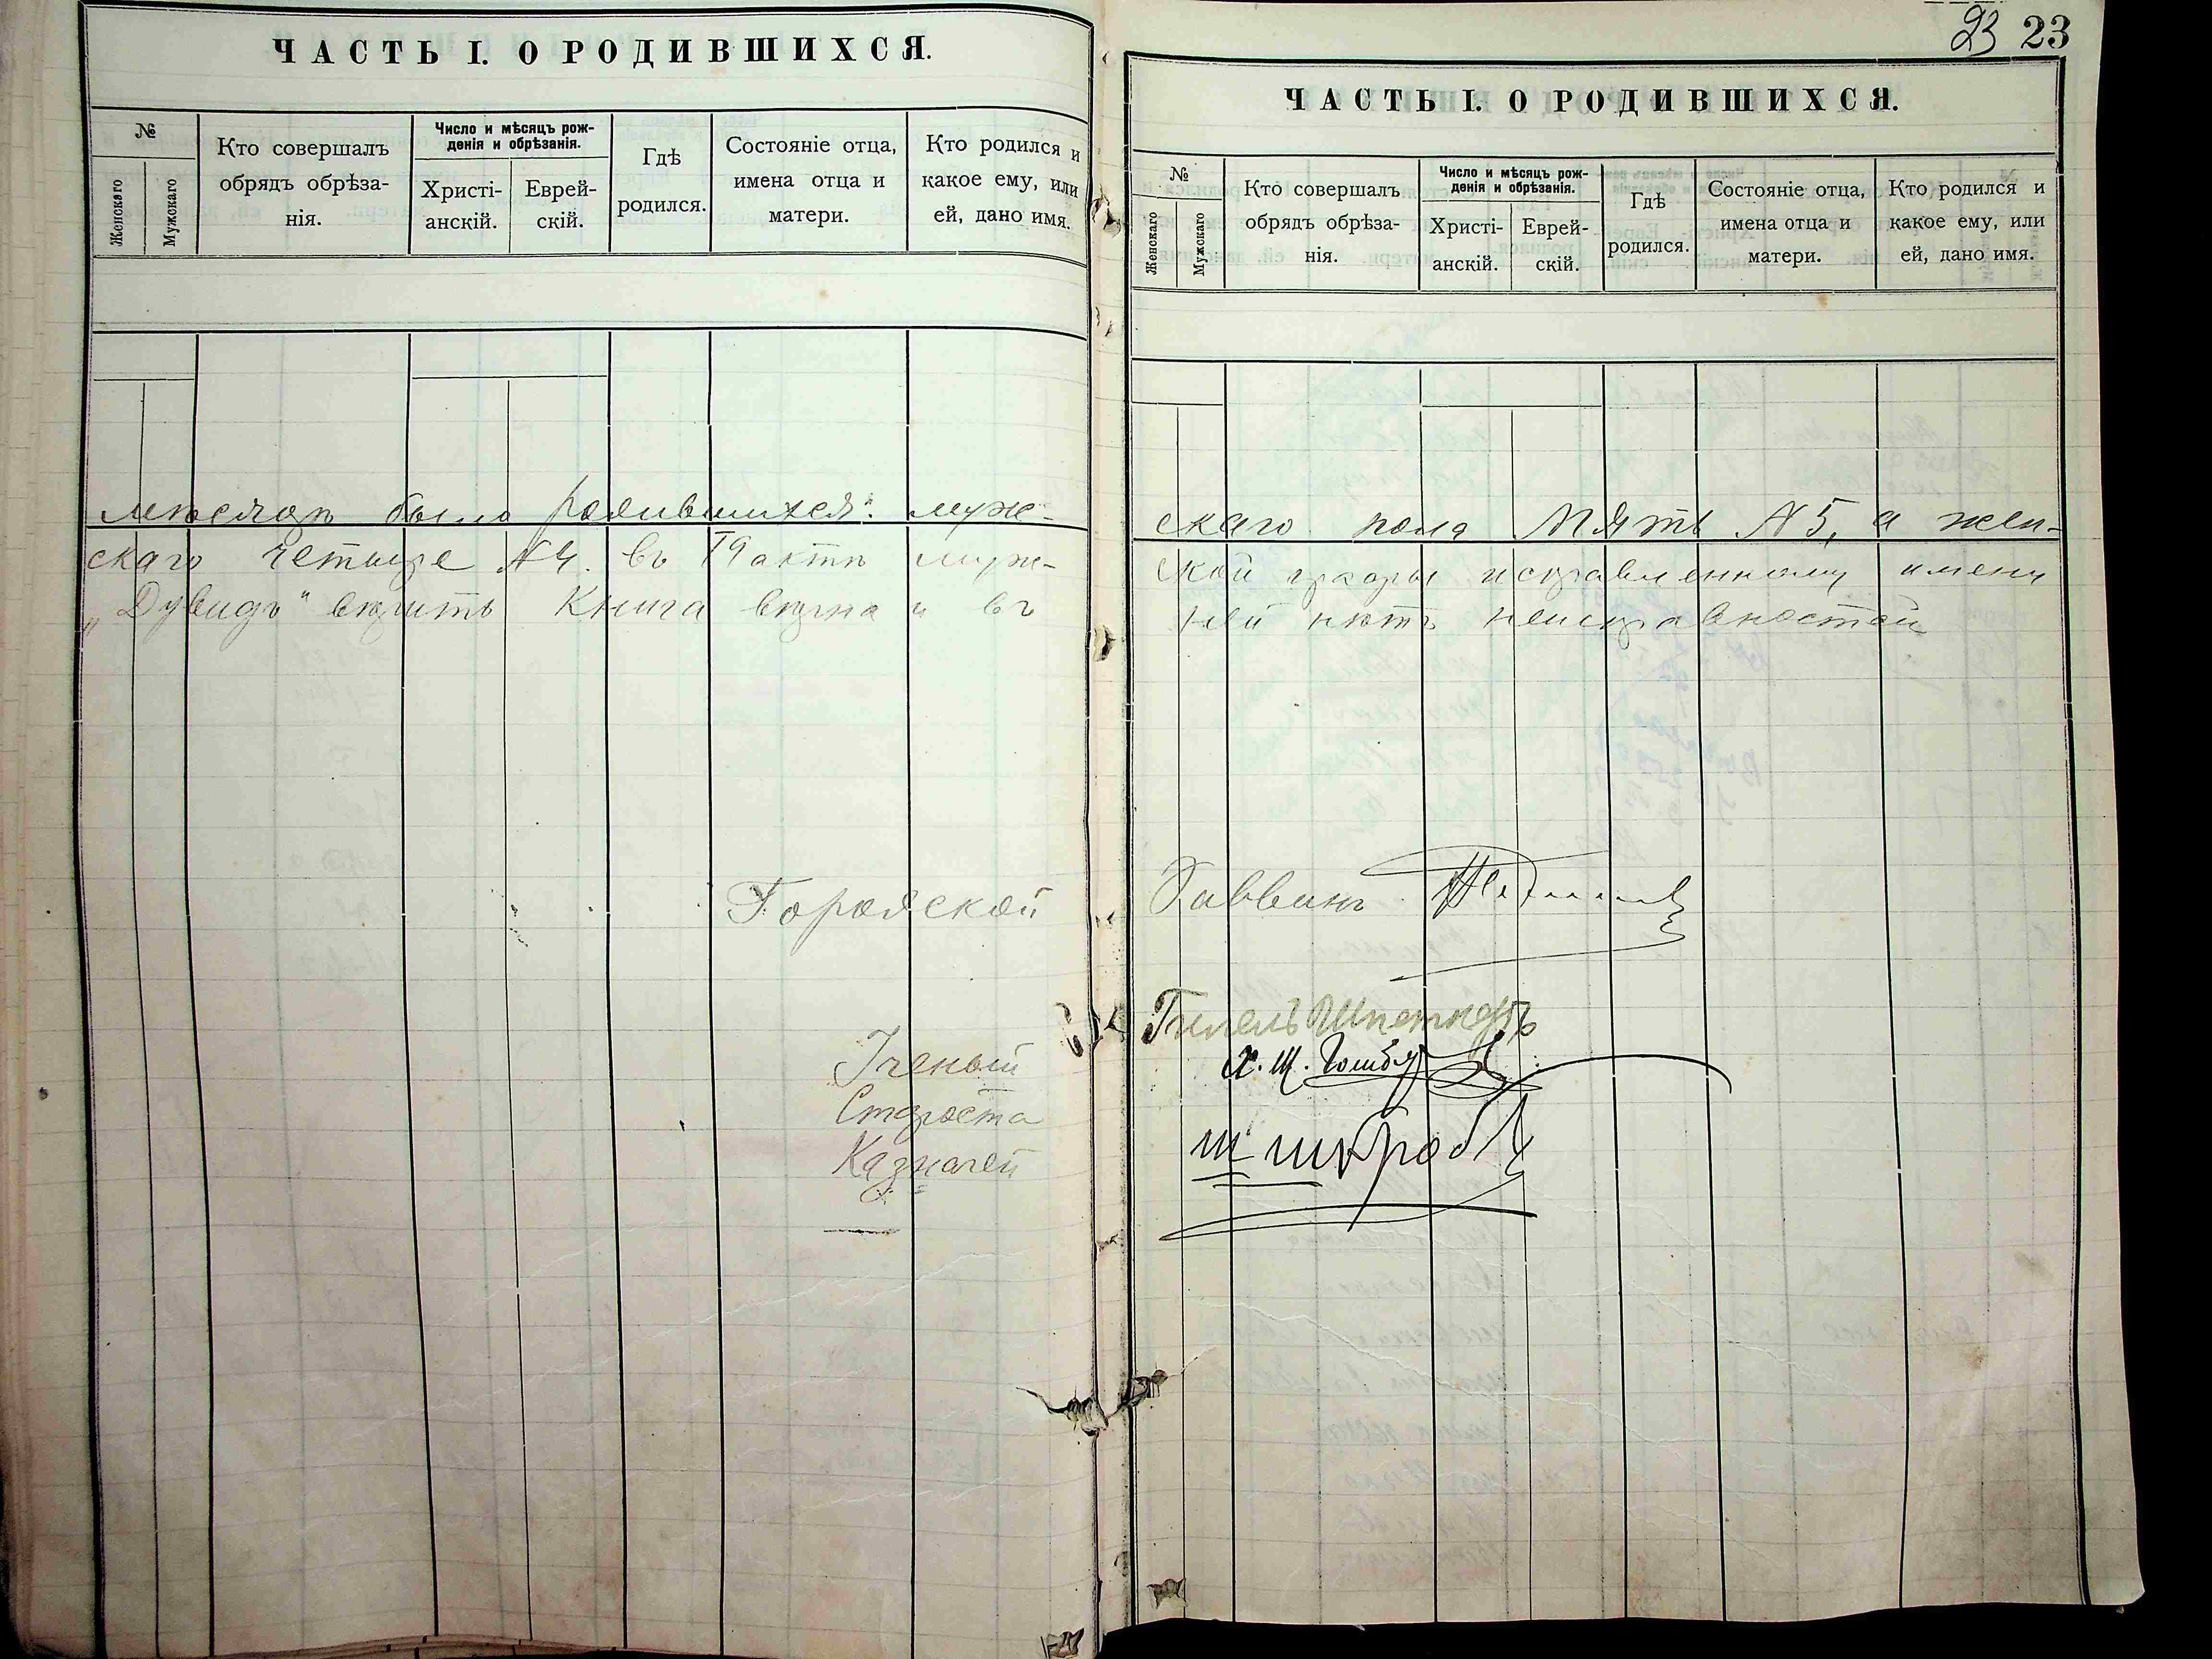 ЧАСТЬ I. О РОДИВШИХСЯ.
№
Женскаго
Мужскаго
Кто совершалъ
обрядъ обрѣза-
нія.
Число и мѣсяцъ рож-
денія и обрѣзанія.
Христі-
анскій.
Еврей-
скій.
Гдѣ
родился.
Состояніе отца,
имена отца и
матери.
Кто родился и
какое ему, или
ей, дано имя.
было родившихся: муж-
скаго четыре №4. въ 19 актѣ муж-
„Дувидъ" вѣрить Книга вѣрна и въ
Городской
Ученый
Староста
Казначей
23 23
ЧАСТЬ I. О РОДИВШИХСЯ.
№
Женскаго
Мужскаго
Кто совершалъ
обрядъ обрѣза-
нія.
Число и мѣсяцъ рож-
денія и обрѣзанія.
Христі-
анскій.
Еврей-
скій.
Гдѣ
родился.
Состояніе отца,
имена отца и
матери.
Кто родился и
какое ему, или
ей, дано имя.
скаго пола Пять №5, а жен-
ской графы исправленному имени
ней нѣтъ неисправностей
Раввинъ